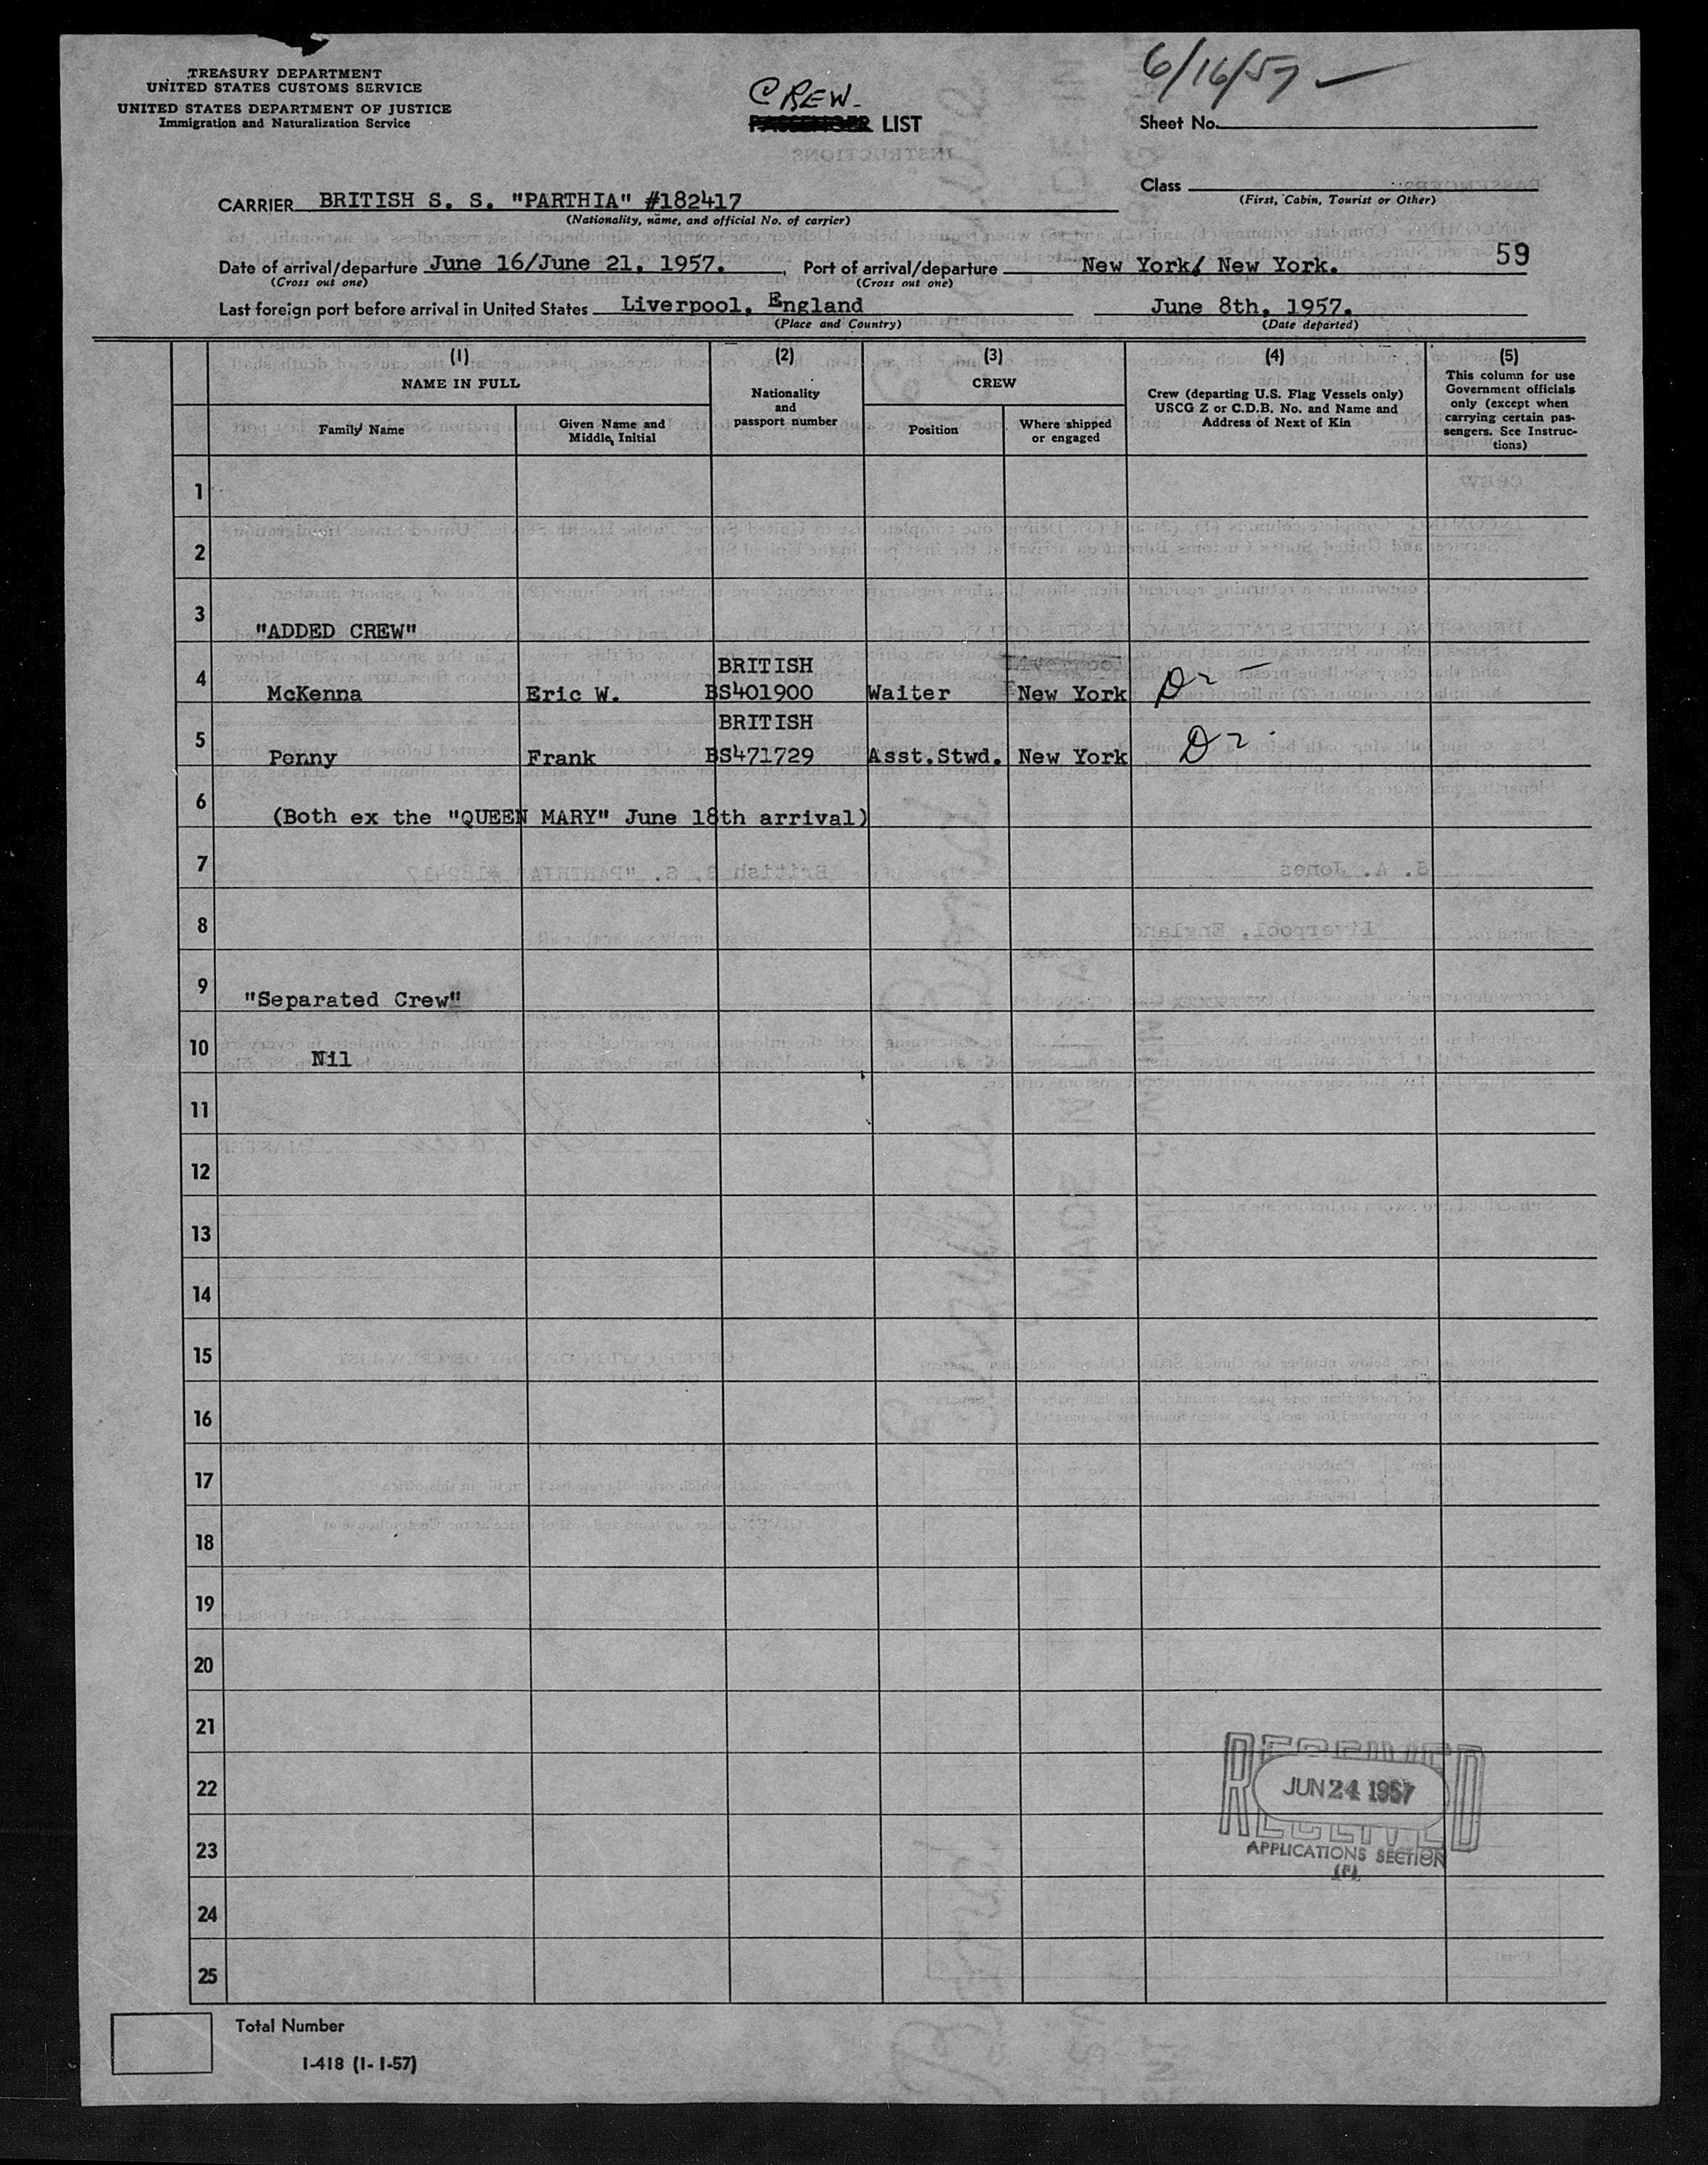 TREASURY DEPARTMENT
UNITED STATES CUSTOMS SERVICE
UNITED STATES DEPARTMENT OF JUSTICE
Immigration and Naturalization Service
CREW.
PASSENGER LIST
6/16/57
Sheet No.
Class
(First, Cabin, Tourist or Other)
CARRIER BRITISH S. S. "PARTHIA" #182417
(Nationality, name, and official No. of carrier)
59
Date of arrival/departure June 16/June 21, 1957. , Port of arrival/departure New York/ New York.
(Cross out one) (Cross out one)
Last foreign port before arrival in United States Liverpool, England June 8th, 1957.
(Place and Country) (Date departed)
(1) (2) (3) (4) (5)
NAME IN FULL
Family Name
Given Name and
Middle Initial
Nationality
and
passport number
CREW
Position
Where shipped
or engaged
Crew (departing U.S. Flag Vessels only)
USCG Z or C.D.B. No. and Name and
Address of Next of Kin
This column for use
Government officials
only (except when
carrying certain pas-
sengers. See Instruc-
tions)
1
2
3 "ADDED CREW"
BRITISH
4 McKenna Eric W. BS401900 Waiter New York
BRITISH
5 Penny Frank BS471729 Asst.Stwd. New York
6 (Both ex the "QUEEN MARY" June 18th arrival)
7
8
9 "Separated Crew"
10 Nil
11
12
13
14
15
16
17
18
19
20
21
22
23
24
25
RECEIVED
JUN 24 1957
RECEIVED
APPLICATIONS SECTION
Total Number
I-418 (1-1-57)